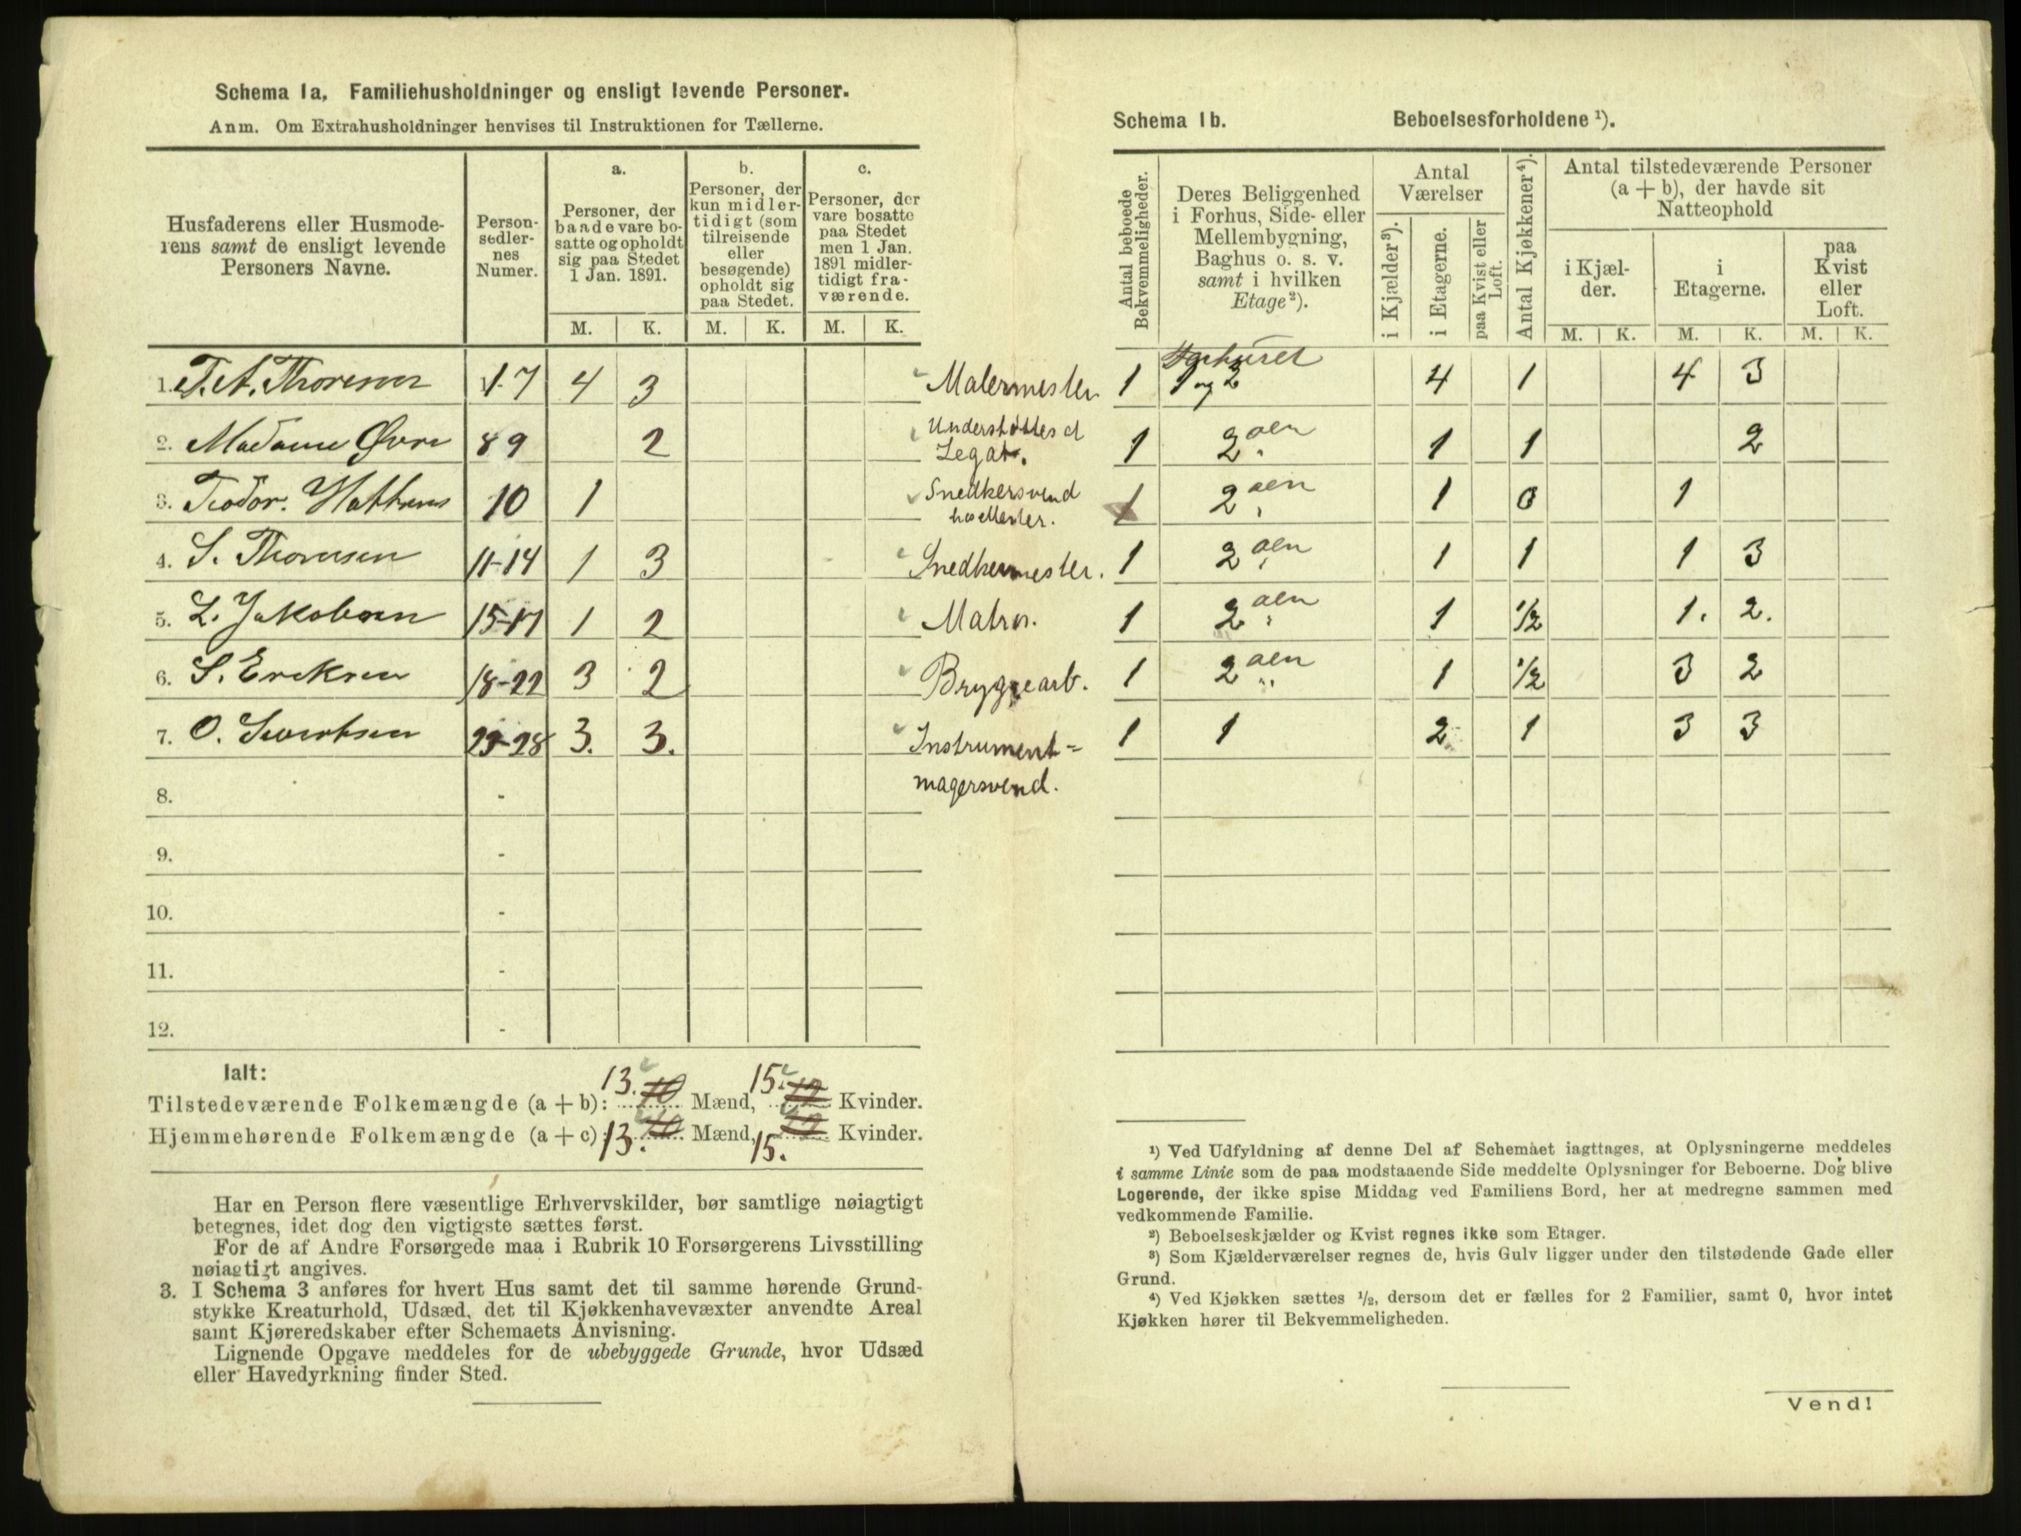 Schema 1a, Familiehusholdninger og ensligt levende Personer.
Anm. Om Extrahusholdninger henvises til Instruktionen for Tællerne.
Husfaderens eller Husmode-
rens samt de ensligt levende
Personers Navne.
Person-
sedler-
nes
Numer.
a.
Personer, der
baade vare bo-
satte og opholdt
sig paa Stedet
1 Jan. 1891.
M. K.
b.
Personer, der
kun midler-
tidigt (som
tilreisende
eller
besøgende)
opholdt sig
paa Stedet.
M. K.
c.
Personer, der
vare bosatte
paa Stedet
men 1 Jan.
1891 midler-
tidigt fra-
værende.
M. K.
1. T. A. Thoresen 1-7 4 3 Malermester
2. Madame Øvre 8 9 2 Understøttes af
Legat.
3. Teodor. 10 1 Snedkersvend
hos Mester.
4. S. Thoresen 11-14 1 3 Snedkermester.
5. L. Jakobsen 15-17 1 2 Matros.
6. S. Eriksen 18-22 3 2 Bryggearb.
7. O. Sivertsen 23-28 3. 3. Instrument=
magersvend.
8. -
9. -
10. -
11. -
12. -
Ialt:
Tilstedeværende Folkemængde (a + b): 13. 10 Mænd, 15. 12 Kvinder.
Hjemmehørende Folkemængde (a + c): 13. 10 Mænd, 15. 12 Kvinder.
Har en Person flere væsentlige Erhvervskilder, bør samtlige nøiagtigt
betegnes, idet dog den vigtigste sættes først.
For de af Andre Forsørgede maa i Rubrik 10 Forsørgerens Livsstilling
nøiagtigt angives.
3. I Schema 3 anføres for hvert Hus samt det til samme hørende Grund-
stykke Kreaturhold, Udsæd, det til Kjøkkenhavevæxter anvendte Areal
samt Kjøreredskaber efter Schemaets Anvisning.
Lignende Opgave meddeles for de ubebyggede Grunde, hvor Udsæd
eller Havedyrkning finder Sted.
Schema 1b. Beboelsesforholdene ¹).
Antal beboede
Bekvemmeligheder.
Deres Beliggenhed
i Forhus, Side- eller
Mellembygning,
Baghus o. s. v.
samt i hvilken
Etage ²).
Antal
Værelser
i Kjælder ³).
i Etagerne.
paa Kvist eller
Loft.
Antal Kjøkkener ⁴).
Antal tilstedeværende Personer
(a + b), der havde sit
Natteophold
i Kjæl-
der.
i
Etagerne.
paa
Kvist
eller
Loft.
M. K. M. K. M. K.
Forhuset
1 1 og 2 4 1 4 3
1 2 den 1 1 2
1 2 den 1 0 1
1 2 den 1 1 1 3
1 2 den 1 1/2 1. 2.
1 2 den 1 1/2 3 2
1 1 2 1 3 3
¹) Ved Udfyldning af denne Del af Schemaet iagttages, at Oplysningerne meddeles
i samme Linie som de paa modstaaende Side meddelte Oplysninger for Beboerne. Dog blive
Logerende, der ikke spise Middag ved Familiens Bord, her at medregne sammen med
vedkommende Familie.
²) Beboelseskjælder og Kvist regnes ikke som Etager.
³) Som Kjælderværelser regnes de, hvis Gulv ligger under den tilstødende Gade eller
Grund.
⁴) Ved Kjøkken sættes ½, dersom det er fælles for 2 Familier, samt 0, hvor intet
Kjøkken hører til Bekvemmeligheden.
Vend!